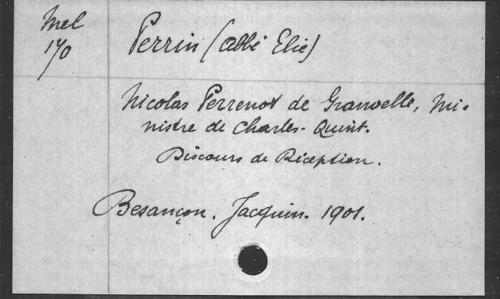 Mel
170
Perrin (abbé Elie)
Nicolas Perrenot de Granvelle, Mi-
nistre de Charles-Quint.
Discours de Réception.
Besançon. Jacquin. 1901.